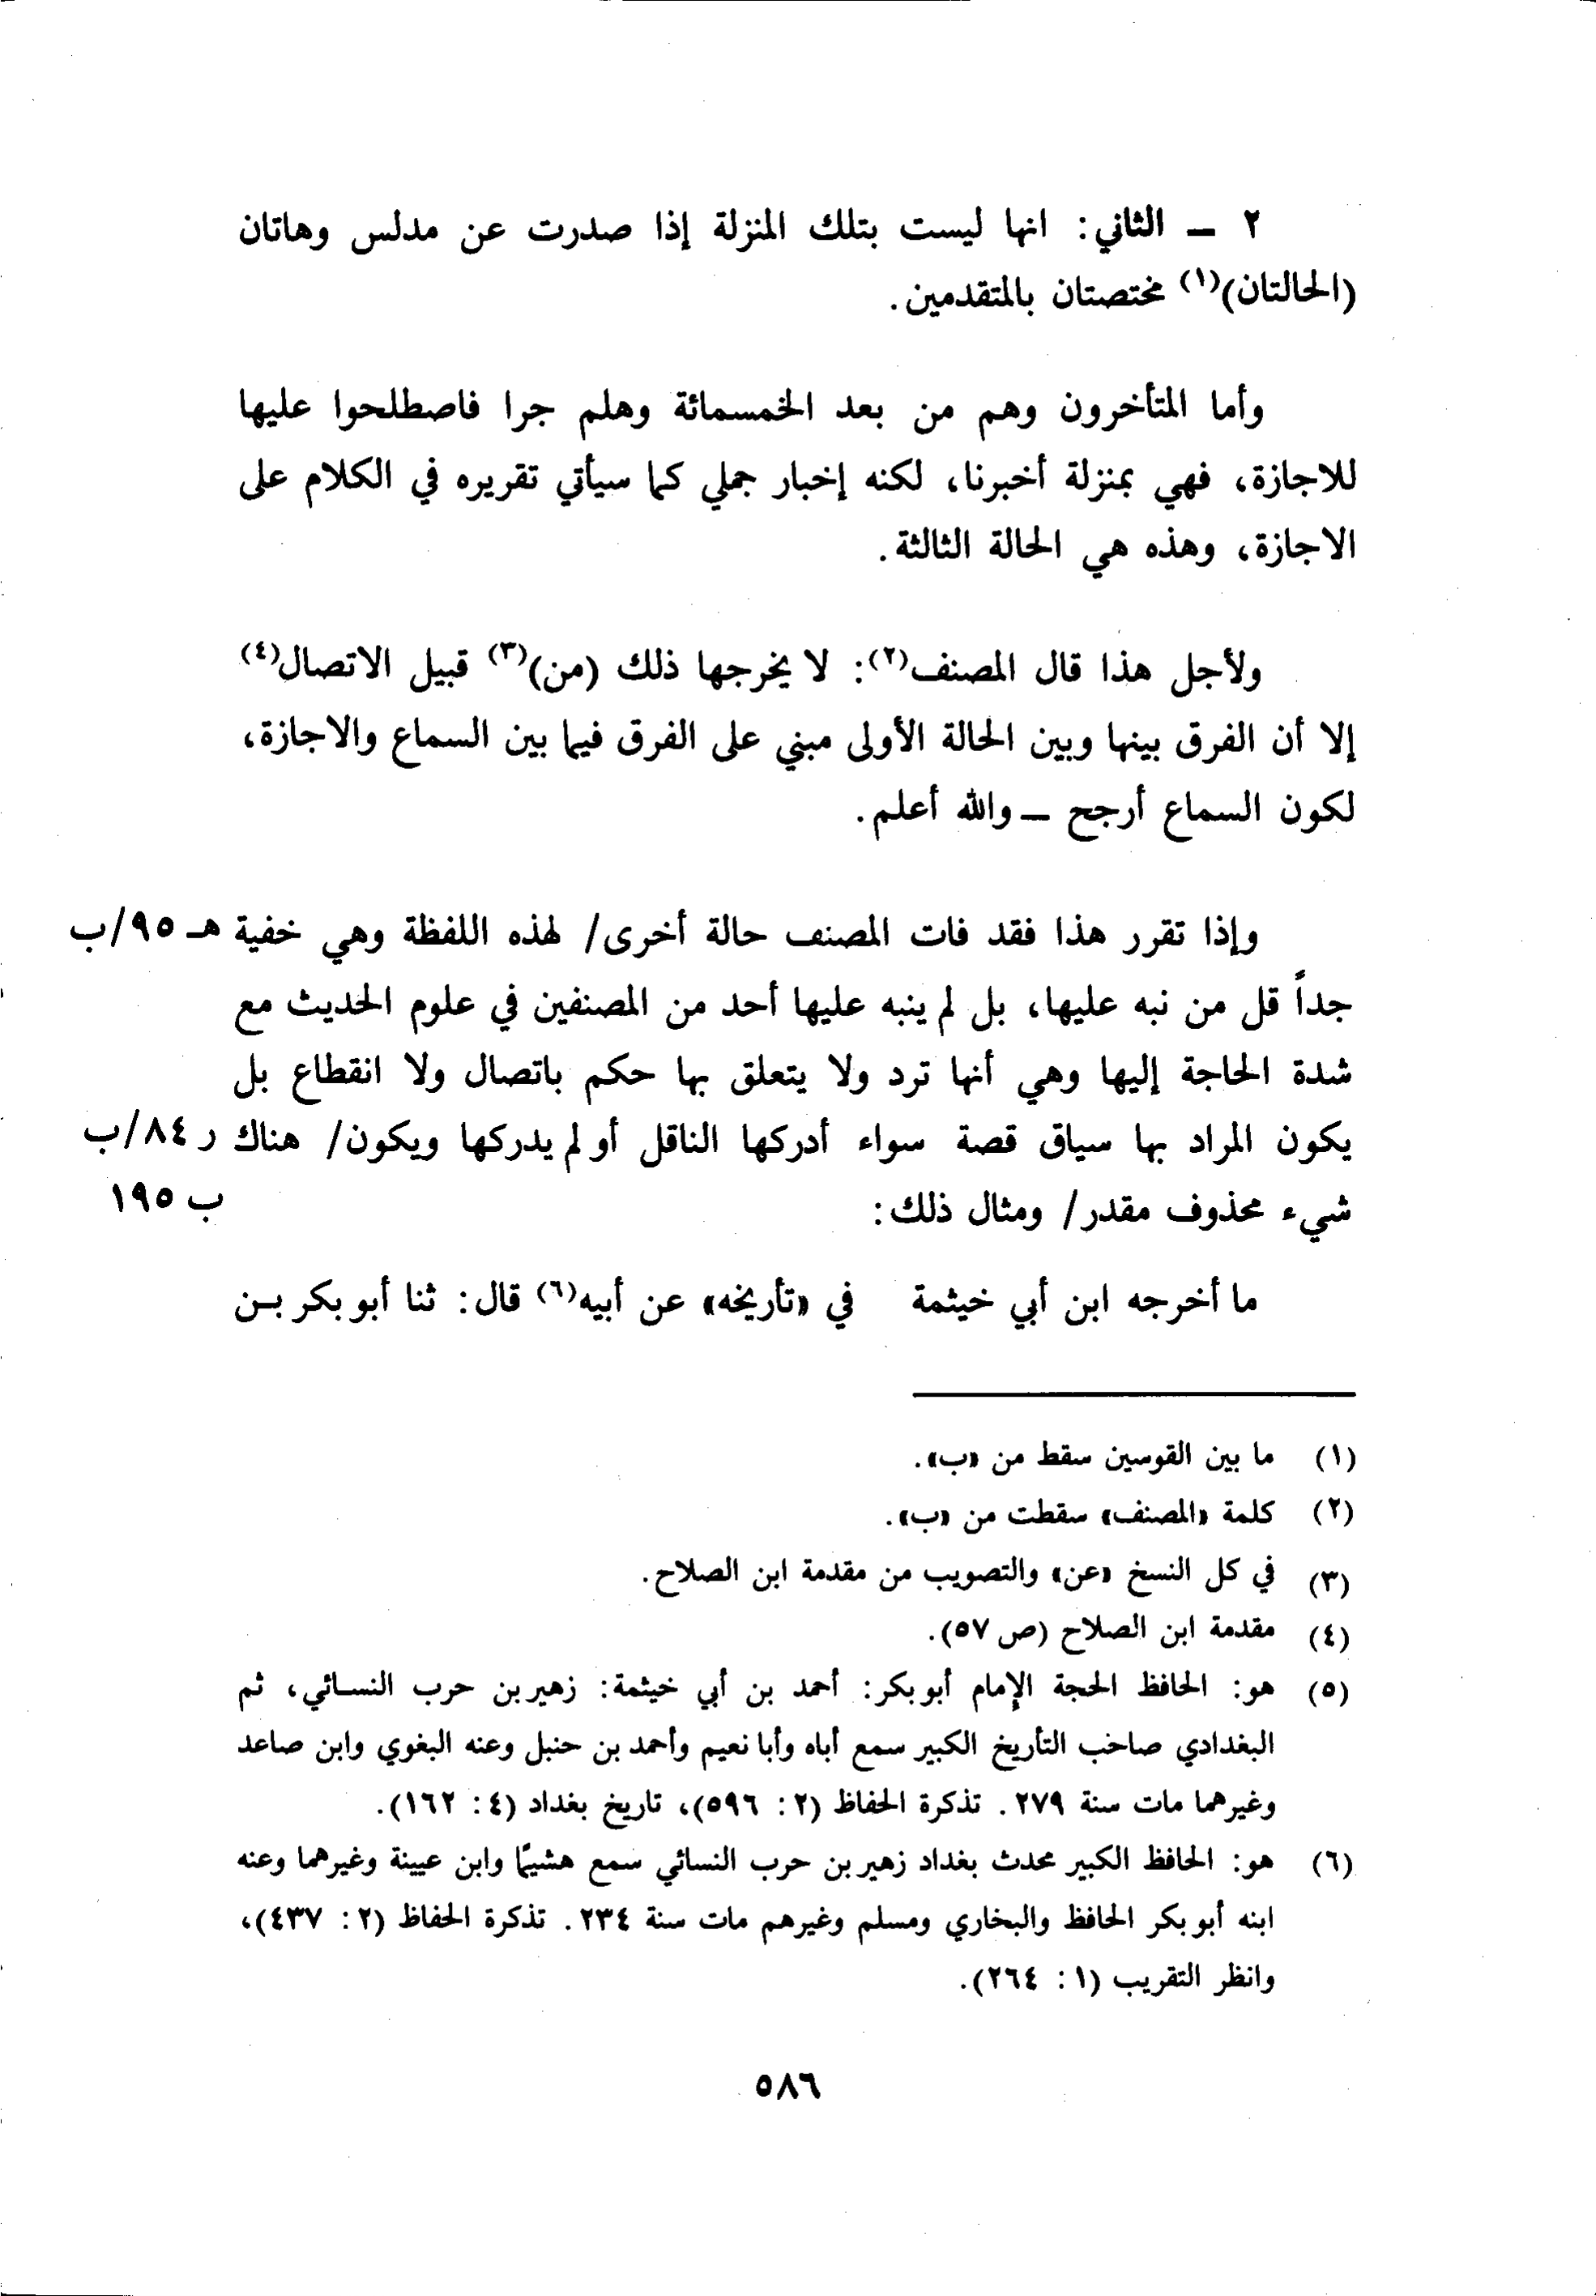 ٢ ــ الثاني: انها ليست بتلك المنزلة إذا صدرت عن مدلس وهاتان
(الحالتان)(١) مختصتان بالمتقدمين.
وأما المتأخرون وهم من بعد الخمسمائة وهلم جرا فاصطلحوا عليها
للاجازة، فهي بمنزلة أخبرنا، لكنه إخبار جملي كما سيأتي تقريره في الكلام على
الاجازة، وهذه هي الحالة الثالثة.
ولأجل هذا قال المصنف(٢): لا يخرجها ذلك (من)(٣) قبيل الاتصال(٤)
إلا أن الفرق بينها وبين الحالة الأولى مبني على الفرق فيما بين السماع والاجازة،
لكون السماع أرجح ــ والله أعلم.
وإذا تقرر هذا فقد فات المصنف حالة أخرى/ لهذه اللفظة وهي خفية هـ ٩٥/ب
جداً قل من نبه عليها، بل لم ينبه عليها أحد من المصنفين في علوم الحديث مع
شدة الحاجة إليها وهي أنها ترد ولا يتعلق بها حكم باتصال ولا انقطاع بل
يكون المراد بها سياق قصة سواء أدركها الناقل أو لم يدركها ويكون/ هناك ر ٨٤/ب
شيء محذوف مقدر/ ومثال ذلك: ب ١٩٥
ما أخرجه ابن أبي خيثمة في «تأريخه» عن أبيه(٦) قال: ثنا أبو بكر بـن
(١) ما بين القوسين سقط من «ب».
(٢) كلمة «المصنف» سقطت من «ب».
(٣) في كل النسخ «عن» والتصويب من مقدمة ابن الصلاح.
(٤) مقدمة ابن الصلاح (ص ٥٧).
(٥) هو: الحافظ الحجة الإمام أبو بكر: أحمد بن أبي خيثمة: زهير بن حرب النسـائي، ثم
البغدادي صاحب التأريخ الكبير سمع أباه وأبا نعيم وأحمد بن حنبل وعنه البغوي وابن صاعد
وغيرهما مات سنة ٢٧٩. تذكرة الحفاظ (٢: ٥٩٦)، تاريخ بغداد (٤: ١٦٢).
(٦) هو: الحافظ الكبير محدث بغداد زهير بن حرب النسائي سمع هشيمًا وابن عيينة وغيرهما وعنه
ابنه أبو بكر الحافظ والبخاري ومسلم وغيرهم مات سنة ٢٣٤. تذكرة الحفاظ (٢: ٤٣٧)،
وانظر التقريب (١: ٢٦٤).
٥٨٦